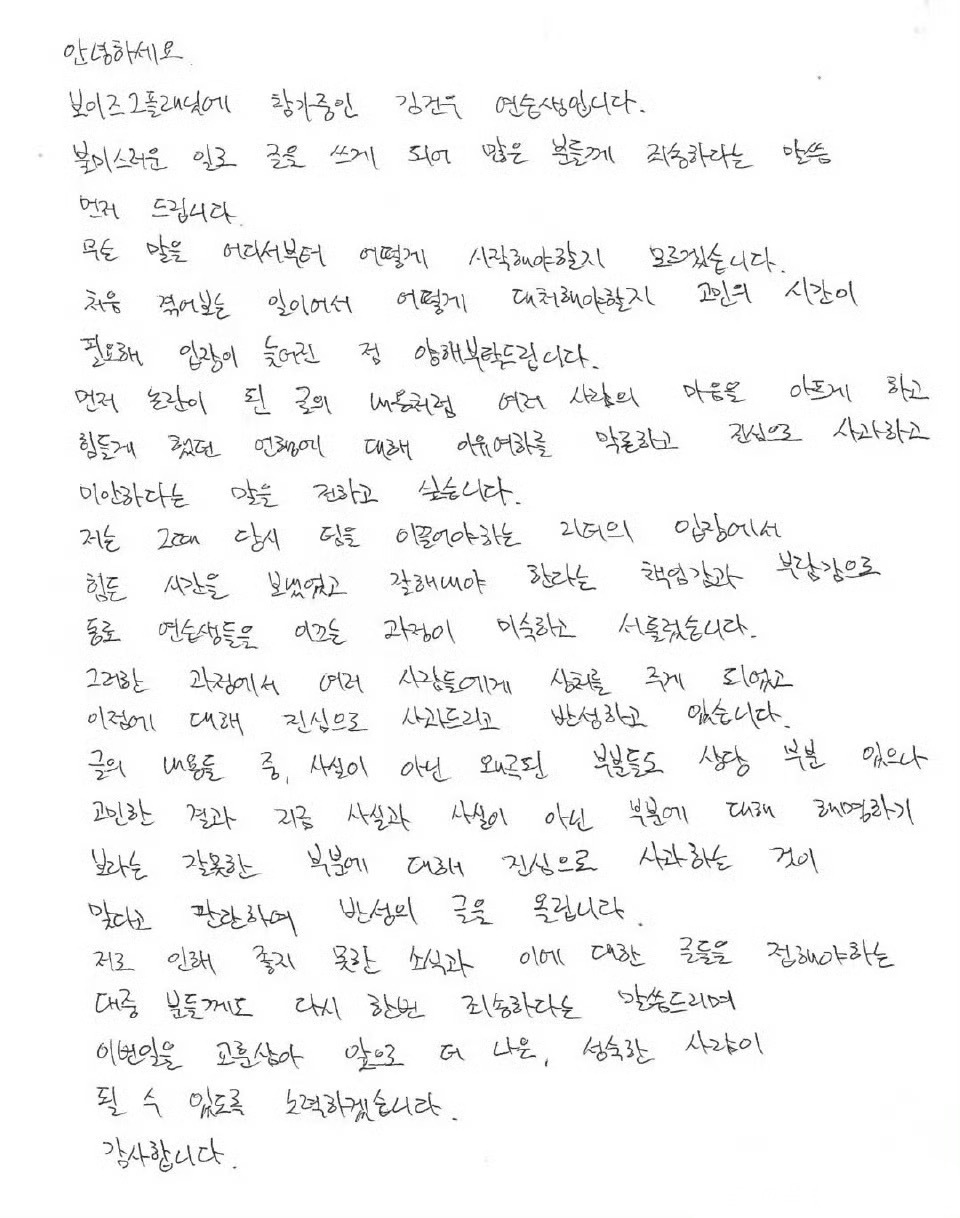 안녕하세요
보이즈2플래닛에 참가중인 김건우 연습생입니다.
불미스러운 일로 글을 쓰게 되어 많은 분들께 죄송하다는 말씀
먼저 드립니다.
무슨 말을 어디서부터 어떻게 시작해야할지 모르겠습니다.
처음 겪어보는 일이어서 어떻게 대처해야할지 고민의 시간이
필요해 입장이 늦어진 점 양해부탁드립니다.
먼저 논란이 된 글의 내용처럼 여러 사람의 마음을 아프게 하고
힘들게 했던 언행에 대해 이유여하를 막론하고 진심으로 사과하고
미안하다는 말을 전하고 싶습니다.
저는 그때 당시 팀을 이끌어야하는 리더의 입장에서
힘든 시간을 보냈었고 잘해내야 한다는 책임감과 부담감으로
동료 연습생들을 이끄는 과정이 미숙하고 서툴렀습니다.
그러한 과정에서 여러 사람들에게 상처를 주게 되었고
이점에 대해 진심으로 사과드리고 반성하고 있습니다.
글의 내용들 중, 사실이 아닌 왜곡된 부분들도 상당 부분 있으나
고민한 결과 지금 사실과 사실이 아닌 부분에 대해 해명하기
보다는 잘못한 부분에 대해 진심으로 사과하는 것이
맞다고 판단하여 반성의 글을 올립니다.
저로 인해 좋지 못한 소식과 이에 대한 글들을 접해야하는
대중 분들께도 다시 한번 죄송하다는 말씀드리며
이번일을 교훈삼아 앞으로 더 나은, 성숙한 사람이
될 수 있도록 노력하겠습니다.
감사합니다.